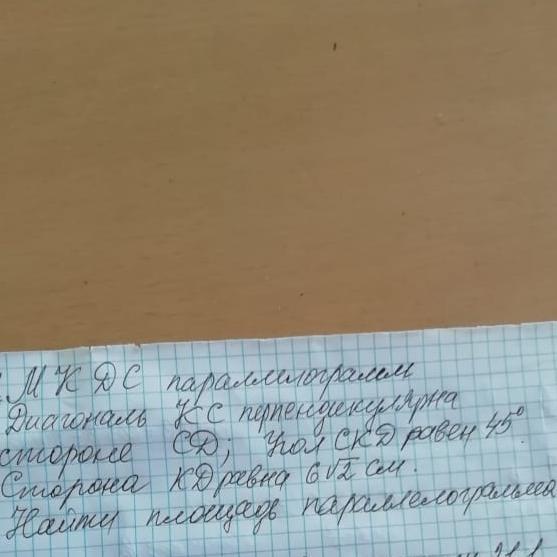 М К D С параллелограмм
Диагональ КС перпендикулярна
стороне CD; Угол СКD равен 45°.
Сторона KD равна 6√2 см.
Найти площадь параллелограмма